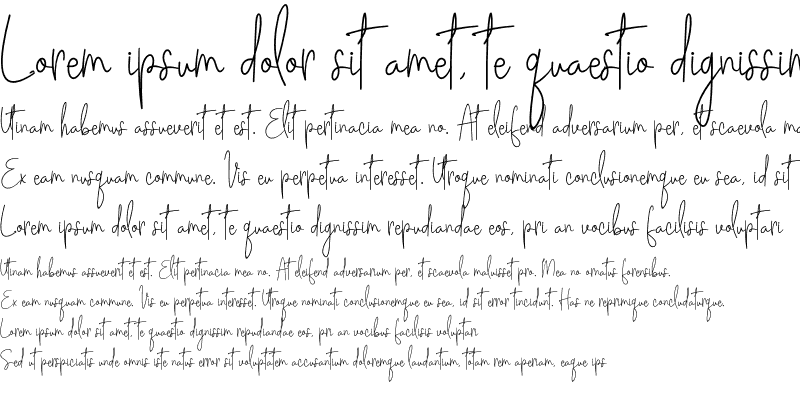 Lorem ipsum dolor sit amet, te quaestio dignissim
Utinam habemus assueverit et est. Elit pertinacia mea no. At eleifend adversarium per, et scaevola ma
Ex eam nusquam commune. Vis eu perpetua interesset. Utroque nominati conclusionemque eu sea, id sit
Lorem ipsum dolor sit amet, te quaestio dignissim repudiandae eos, pri an vocibus facilisis voluptari
Utinam habemus assueverit et est. Elit pertinacia mea no. At eleifend adversarium per, et scaevola maluisset pro. Mea no ornatus forensibus.
Ex eam nusquam commune. Vis eu perpetua interesset. Utroque nominati conclusionemque eu sea, id sit error tincidunt. Has ne reprimique concludaturque.
Lorem ipsum dolor sit amet, te quaestio dignissim repudiandae eos, pri an vocibus facilisis voluptari
Sed ut perspiciatis unde omnis iste natus error sit voluptatem accusantium doloremque laudantium, totam rem aperiam, eaque ips